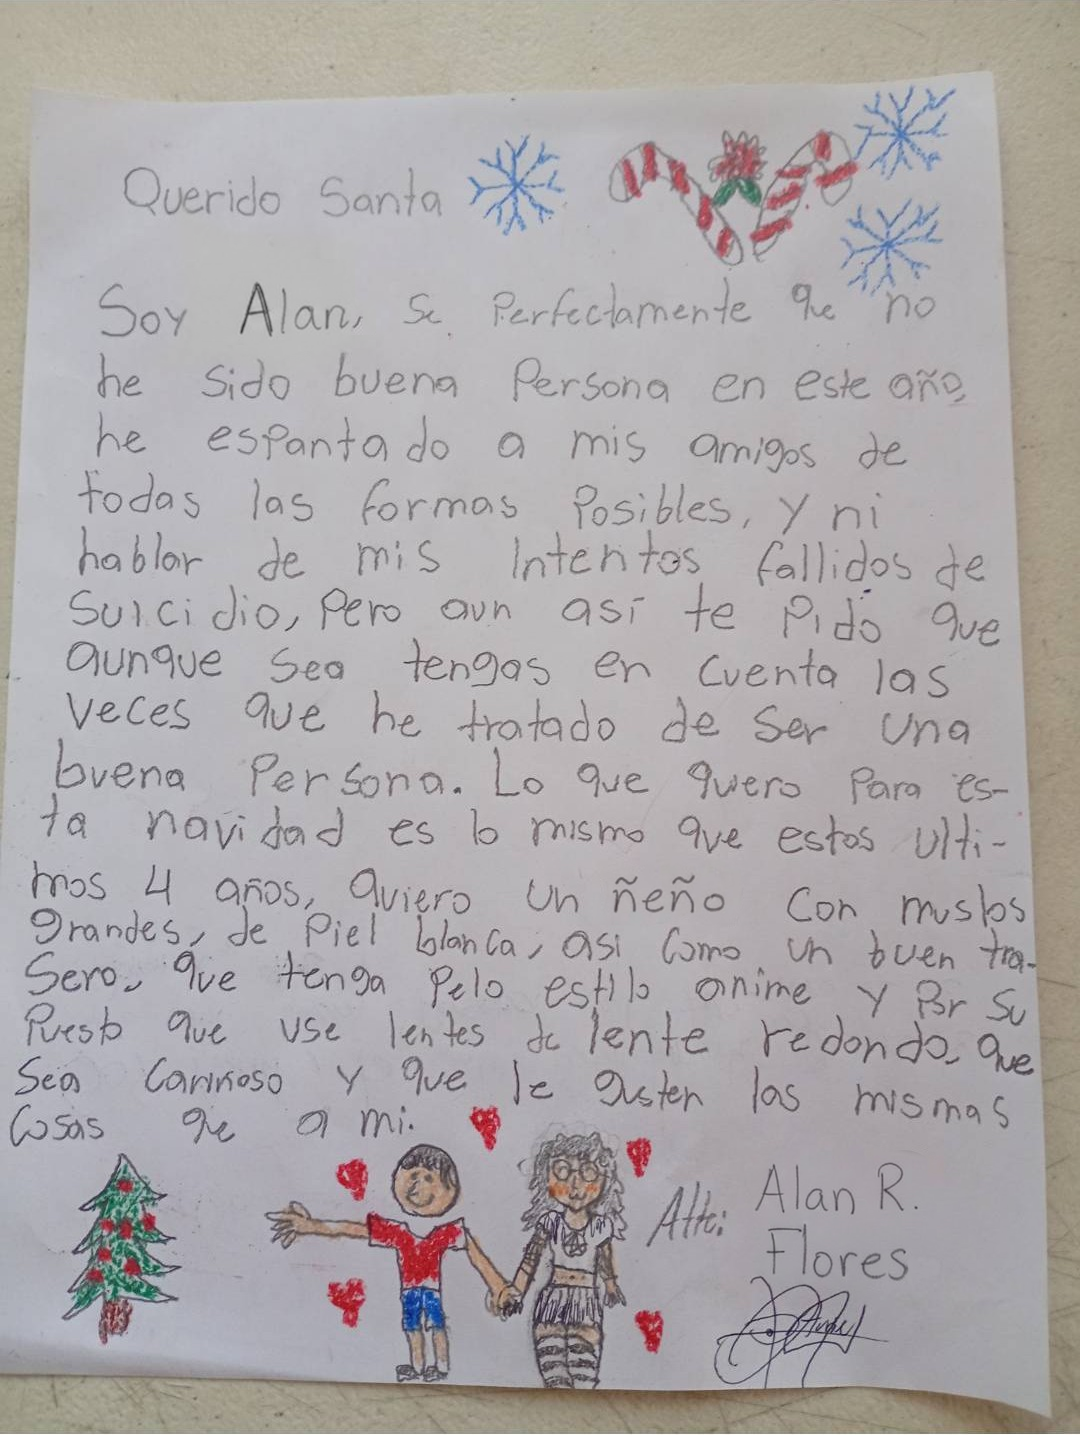 Querido Santa
Soy Alan, se perfectamente que no
he sido buena persona en este año,
he espantado a mis amigos de
todas las formas posibles, y ni
hablar de mis intentos fallidos de
suicidio, pero aun así te pido que
aunque sea tengas en cuenta las
veces que he tratado de ser una
buena persona. Lo que quero para es-
ta navidad es lo mismo que estos ulti-
mos 4 años, quiero un ñeño con muslos
grandes, de piel blanca, asi como un buen tra-
sero, que tenga pelo estilo anime y por su
puesto que use lentes de lente redondo, que
sea cariñoso y que le gusten las mismas
cosas que a mi.
Atte: Alan R.
Flores